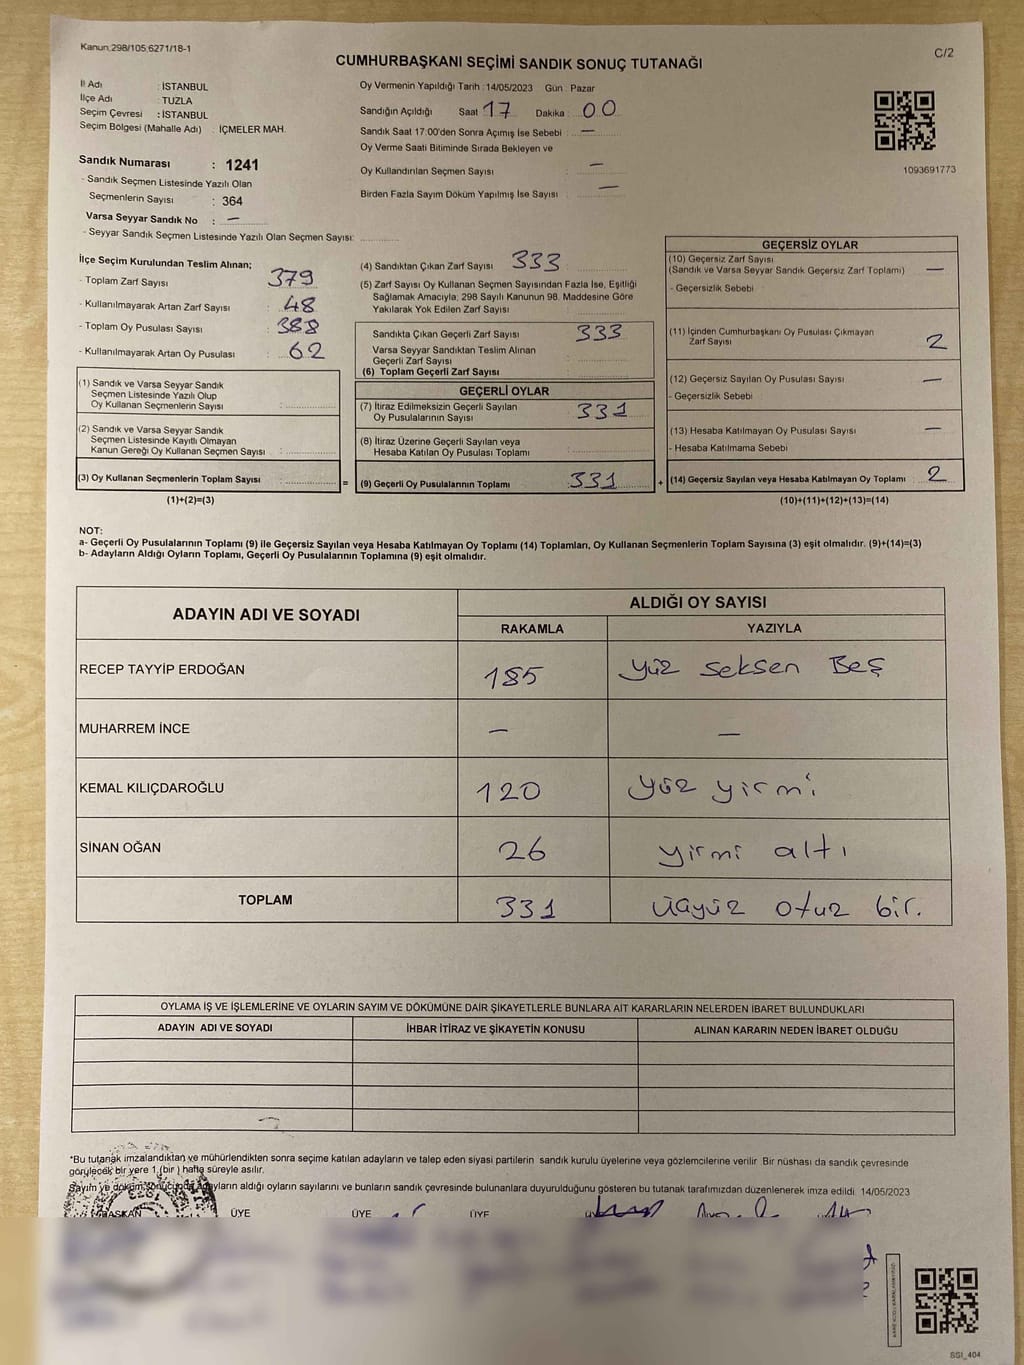 Kanun;298/105;6271/18-1
C/2
CUMHURBAŞKANI SEÇİMİ SANDIK SONUÇ TUTANAĞI
İl Adı : İSTANBUL
İlçe Adı : TUZLA
Seçim Çevresi : İSTANBUL
Seçim Bölgesi (Mahalle Adı) : İÇMELER MAH.
Oy Vermenin Yapıldığı Tarih : 14/05/2023 Gün : Pazar
Sandığın Açıldığı Saat : 17 Dakika : 00
Sandık Saat 17:00'den Sonra Açımış İse Sebebi : —
Oy Verme Saati Bitiminde Sırada Bekleyen ve
Oy Kullandırılan Seçmen Sayısı : —
Birden Fazla Sayım Döküm Yapılmış İse Sayısı : —
1093691773
Sandık Numarası : 1241
- Sandık Seçmen Listesinde Yazılı Olan
Seçmenlerin Sayısı : 364
Varsa Seyyar Sandık No : —
- Seyyar Sandık Seçmen Listesinde Yazılı Olan Seçmen Sayısı:
İlçe Seçim Kurulundan Teslim Alınan;
- Toplam Zarf Sayısı : 379
- Kullanılmayarak Artan Zarf Sayısı : 48
- Toplam Oy Pusulası Sayısı : 388
- Kullanılmayarak Artan Oy Pusulası : 62
(1) Sandık ve Varsa Seyyar Sandık
Seçmen Listesinde Yazılı Olup
Oy Kullanan Seçmenlerin Sayısı :
(2) Sandık ve Varsa Seyyar Sandık
Seçmen Listesinde Kayıtlı Olmayan
Kanun Gereği Oy Kullanan Seçmen Sayısı :
(3) Oy Kullanan Seçmenlerin Toplam Sayısı : =
(1)+(2)=(3)
(4) Sandıktan Çıkan Zarf Sayısı : 333
(5) Zarf Sayısı Oy Kullanan Seçmen Sayısından Fazla İse, Eşitliği
Sağlamak Amacıyla; 298 Sayılı Kanunun 98. Maddesine Göre
Yakılarak Yok Edilen Zarf Sayısı :
Sandıkta Çıkan Geçerli Zarf Sayısı : 333
Varsa Seyyar Sandıktan Teslim Alınan
Geçerli Zarf Sayısı :
(6) Toplam Geçerli Zarf Sayısı :
GEÇERLİ OYLAR
(7) İtiraz Edilmeksizin Geçerli Sayılan
Oy Pusulalarının Sayısı : 331
(8) İtiraz Üzerine Geçerli Sayılan veya
Hesaba Katılan Oy Pusulası Toplamı :
(9) Geçerli Oy Pusulalarının Toplamı : 331 +
GEÇERSİZ OYLAR
(10) Geçersiz Zarf Sayısı
(Sandık ve Varsa Seyyar Sandık Geçersiz Zarf Toplamı) : —
- Geçersizlik Sebebi :
(11) İçinden Cumhurbaşkanı Oy Pusulası Çıkmayan
Zarf Sayısı : 2
(12) Geçersiz Sayılan Oy Pusulası Sayısı : —
- Geçersizlik Sebebi :
(13) Hesaba Katılmayan Oy Pusulası Sayısı : —
- Hesaba Katılmama Sebebi :
(14) Geçersiz Sayılan veya Hesaba Katılmayan Oy Toplamı : 2
(10)+(11)+(12)+(13)=(14)
NOT:
a- Geçerli Oy Pusulalarının Toplamı (9) ile Geçersiz Sayılan veya Hesaba Katılmayan Oy Toplamı (14) Toplamları, Oy Kullanan Seçmenlerin Toplam Sayısına (3) eşit olmalıdır. (9)+(14)=(3)
b- Adayların Aldığı Oyların Toplamı, Geçerli Oy Pusulalarının Toplamına (9) eşit olmalıdır.
ADAYIN ADI VE SOYADI
ALDIĞI OY SAYISI
RAKAMLA YAZIYLA
RECEP TAYYİP ERDOĞAN 185 yüz seksen Beş
MUHARREM İNCE — —
KEMAL KILIÇDAROĞLU 120 yüz yirmi
SİNAN OĞAN 26 yirmi altı
TOPLAM 331 üçyüz otuz bir.
OYLAMA İŞ VE İŞLEMLERİNE VE OYLARIN SAYIM VE DÖKÜMÜNE DAİR ŞİKAYETLERLE BUNLARA AİT KARARLARIN NELERDEN İBARET BULUNDUKLARI
ADAYIN ADI VE SOYADI İHBAR İTİRAZ VE ŞİKAYETİN KONUSU ALINAN KARARIN NEDEN İBARET OLDUĞU
*Bu tutanak imzalandıktan ve mühürlendikten sonra seçime katılan adayların ve talep eden siyasi partilerin sandık kurulu üyelerine veya gözlemcilerine verilir Bir nüshası da sandık çevresinde
görülecek bir yere 1 (bir ) hafta süreyle asılır.
Sayım ve döküm sonucunda adayların aldığı oyların sayılarını ve bunların sandık çevresinde bulunanlara duyurulduğunu gösteren bu tutanak tarafımızdan düzenlenerek imza edildi. 14/05/2023
BAŞKAN ÜYE ÜYE ÜYE
SSI_404